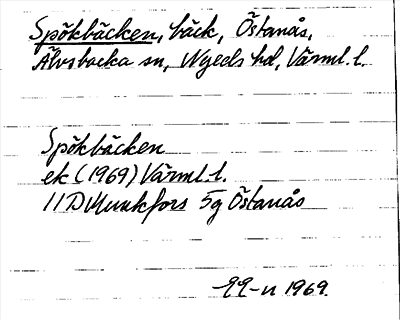 Spökbäcken, bäck, Östanås,
Älvsbacka sn, Nyeds hd, Värml. l.
Spökbäcken
ek (1969) Värml. l.
11D Munkfors 5g Östanås
1969.